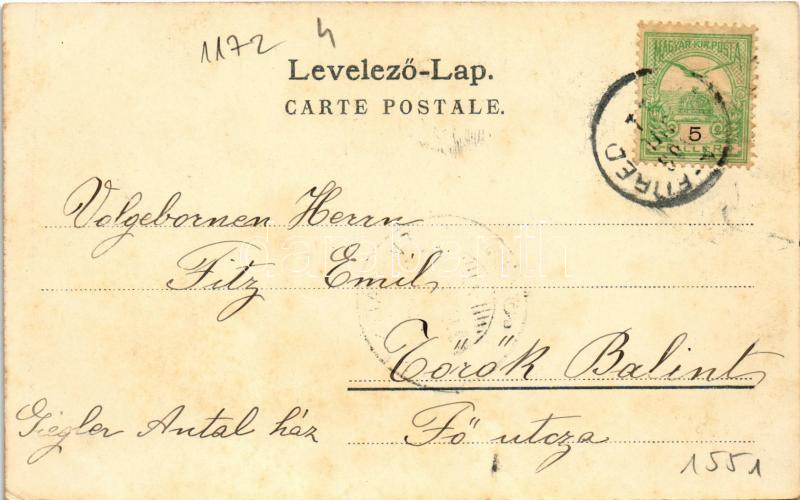 1172 4
Levelező-Lap.
CARTE POSTALE.
MAGYAR KIR. POSTA
5
FILLÉR
FÜRED
Volgebornen Herrn
Fitz Emil
Török Balint
Giegler Antal ház Fő utcza
1551
darabanth